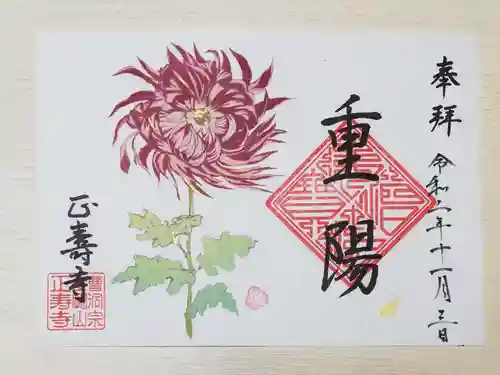 奉拝
令和二年十一月三日
重陽
正壽寺
曹洞宗
山
正寿寺